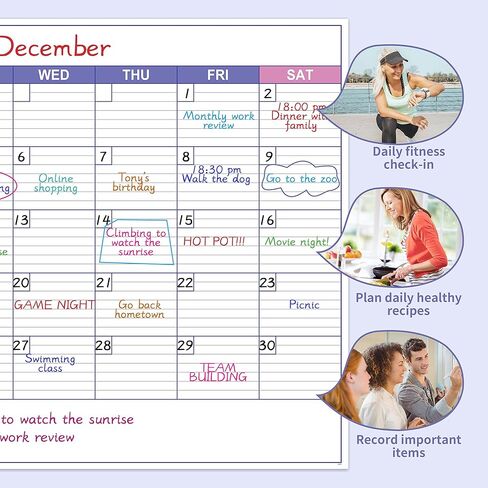 December
WED THU FRI SAT
1 2
Monthly work
review
18:00 pm
Dinner with
family
6 7 8 9
Online
shopping
Tony's
birthday
18:30 pm
Walk the dog
Go to the zoo
13 14 15 16
Climbing to
watch the
sunrise
HOT POT!!!
Movie night!
20 21 22 23
GAME NIGHT
Go back
hometown
Picnic
27 28 29 30
Swimming
class
TEAM
BUILDING
to watch the sunrise
work review
Daily fitness
check-in
Plan daily healthy
recipes
Record important
items